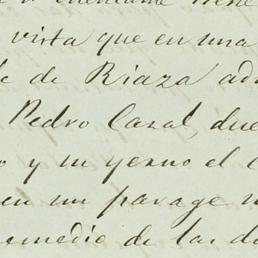 vista que en una
de Riaza ad
Pedro Casal, due
y su yerno el
en un parage
remedio de las d